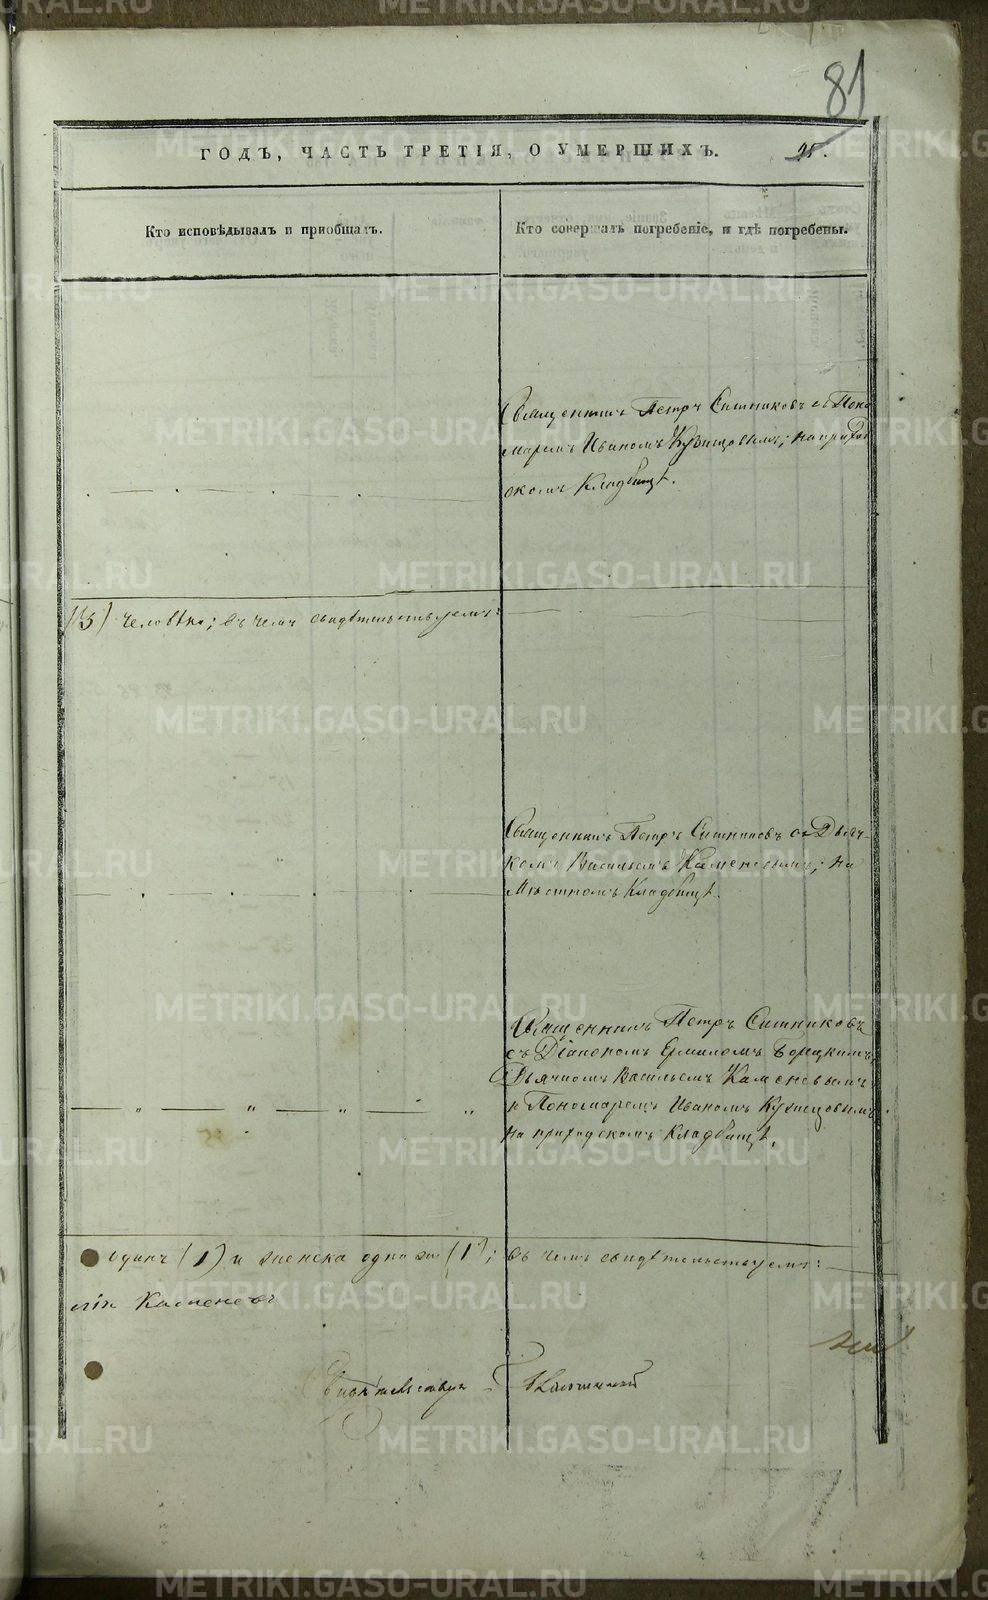 81
ГОДЪ, ЧАСТЬ ТРЕТІЯ, О УМЕРШИХЪ.
25.
Кто исповѣдывалъ и пріобщалъ.
Кто совершалъ погребеніе, и гдѣ погребены.
Священникъ Петръ Ситниковъ съ Поно
маремъ Иваномъ Кузнецовымъ; на приход
скомъ Кладбищѣ.
человѣка; въ чемъ свидѣтельствуемъ:
Священникъ Петръ Ситниковъ съ Дьяч-
комъ Васильемъ Каменевымъ; на
Мѣстномъ Кладбищѣ.
Священникъ Петръ Ситниковъ
съ Діакономъ Ермиломъ
Дьячкомъ Васильемъ Каменевымъ
и Пономаремъ Иваномъ Кузнецовымъ
на приходскомъ Кладбищѣ.
одинъ (1) и женска одна (1); въ чемъ свидѣтельствуемъ:
лій Каменевъ
METRIKI.GASO-URAL.RU